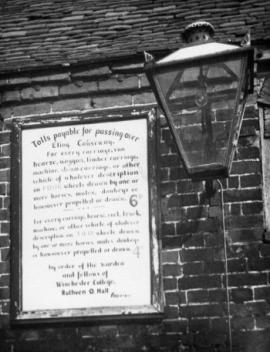 Tolls payable for passing over
Eling Causeway.
For every carriage, van
hearse, waggon, timber carriage,
machine, steam carriage, or other
vehicle of whatever description
on FOUR wheels drawn by one or
more horses, mules, donkeys or
howsoever propelled or drawn. 6
For every carriage, hearse, cart, truck,
machine, or other vehicle of whatever
description on TWO wheels drawn
by one or more horses mules donkeys
or howsoever propelled or drawn. 4
by order of the Warden
and fellows of
Winchester College,
Ruthven O. Hall